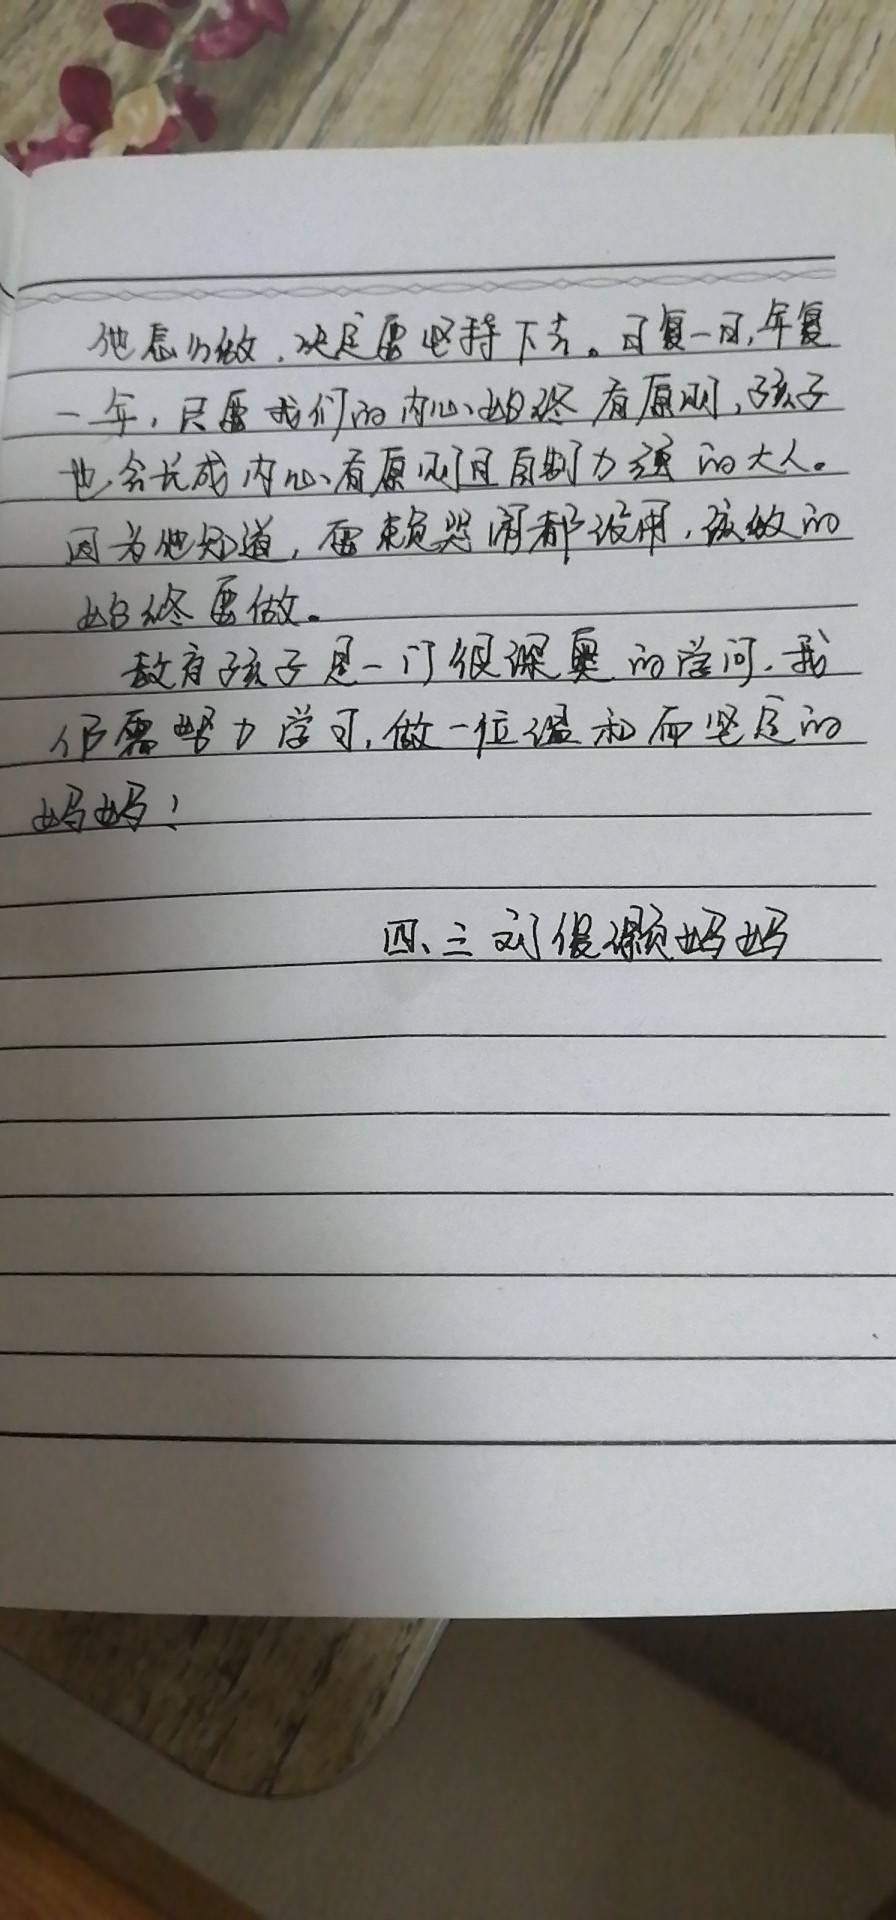 他怎么做,决定要坚持下去。日复一日,年复
一年,只要我们的内心始终有原则,孩子
也会长成内心有原则且自制力强的大人。
因为他知道,耍赖哭闹都没用,该做的
始终要做。
教育孩子是一门很深奥的学问,我
仍需努力学习,做一位温和而坚定的
妈妈!
四、三 刘俊灏妈妈